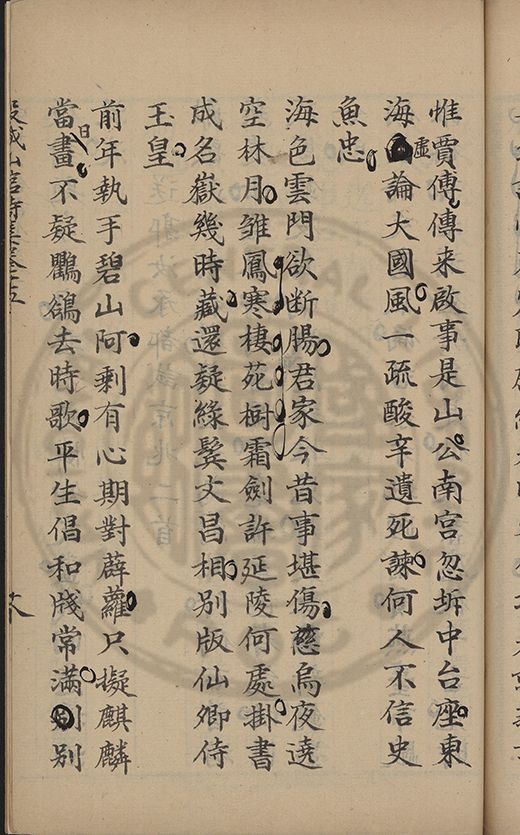 惟賈傅傳來啟事是山公南宮忽坼中台座東
海虛論大國風一疏酸辛遺死諫何人不信史
魚忠
海色雲門欲断腸君家今昔事堪傷慈烏夜遶
空林月雏鳳寒棲苑樹霜劍許延陵何處掛書
成名嶽幾時藏還疑綠鬓文昌相别版仙卿侍
玉皇
前年執手碧山阿剩有心期對薜蘿只擬麒麟
當晝日不疑鸜鵒去時歌平生倡和牋常滿别